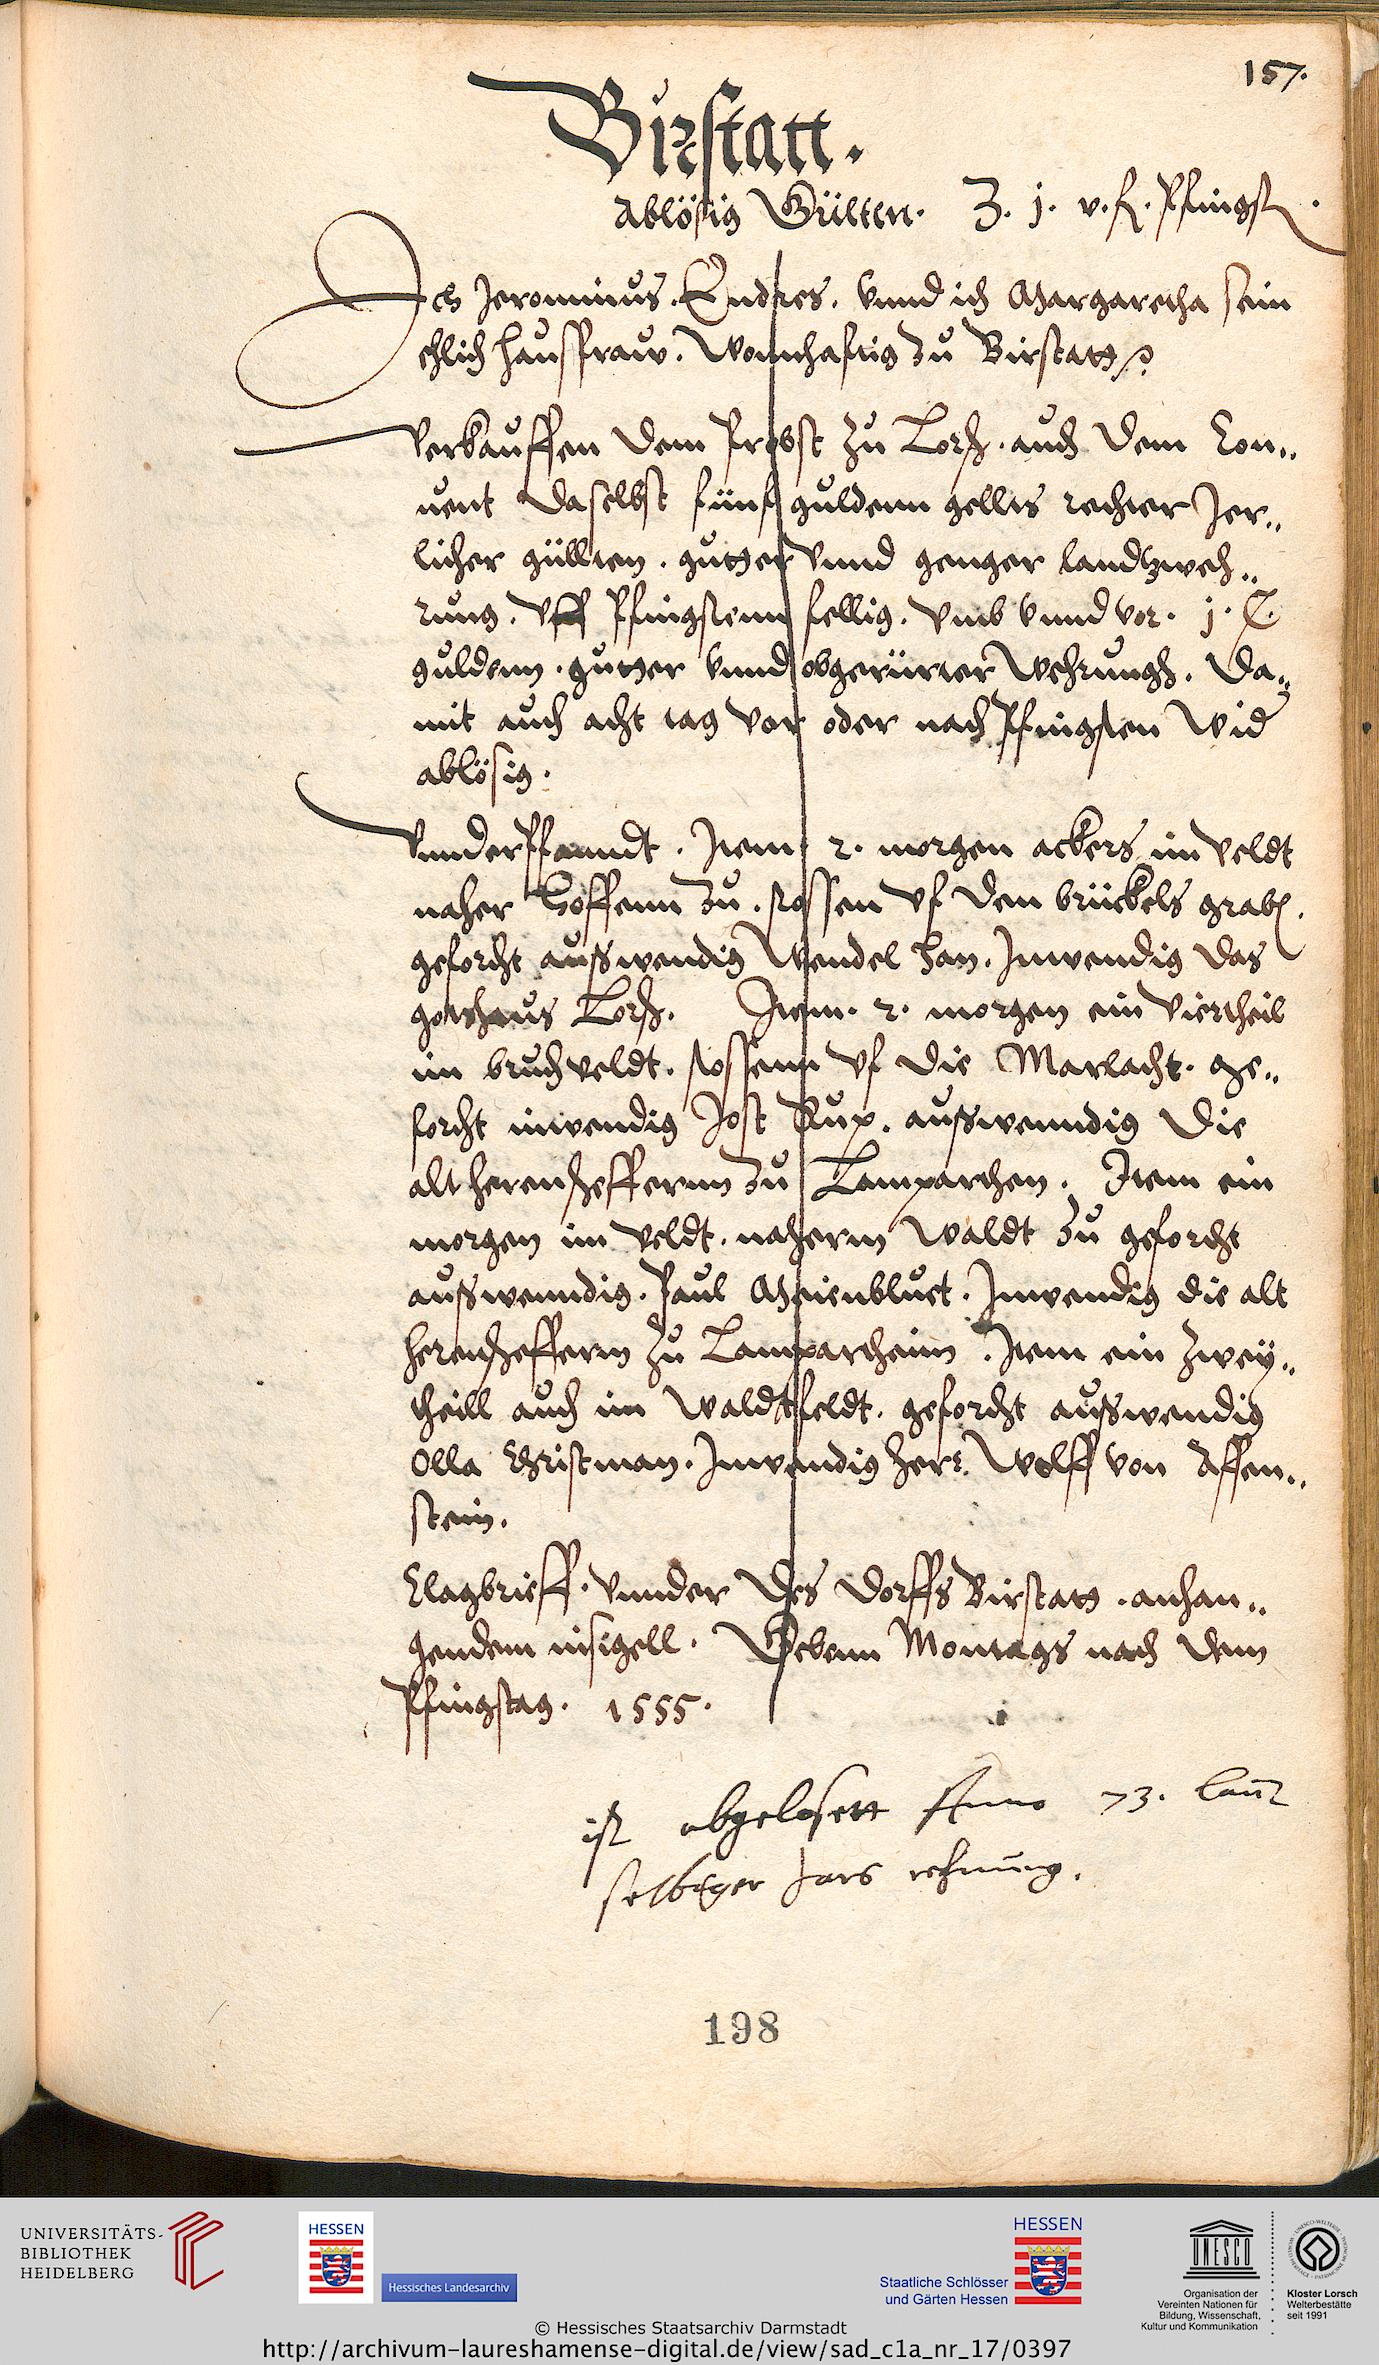 157.
Birstatt.
Ablösig Gülten. Z. j. v. fl. Pfingst.
Ich Jeronimus. Endres. vnnd ich Margaretha sein
ehlich haussfraw. Wonnhafftig zu Birstatt
Verkauffen dem Probst zu Lorsch. auch dem Con„
uent daselbst fünf guldenn gellts rechter Jer„
licher gülltten. gutter vnnd genger landtzweh„
rung. vff Pfingstenn fellig. vmb vnnd vor. j. C.
guldenn. gutter vnnd obgerürter Wehrungh. Da„
mit auch acht tag vor oder nach Pfingsten wid
ablösig.
Vnnderpfanndt. Item. 2. morgen ackers im veldt
naher Hoffenn zu. stossen vf den brückels grab.
geforcht ausswendig Wendel Han. Inwendig das
gottshaus Lorsch. Item. 2. morgen ein viertheil
im bruchveldt. stossenn vf die Marlacht. ge„
forcht inwendig Jost Rup. ausswenndig die
altherenhefferin zu Lamparthen. Item ein
morgen im veldt. naherm Waldt zu geforcht
ausswenndig. Paul Meienbluet. Inwendig die alt
herenhefferin zu Lampartheim. Item ein zwey„
theill auch im Waldtfeldt. geforcht ausswendig
Olla Christman. Inwendig herr. Wolff von Affen„
stein.
Clagbrieff. vnnder des dorffs Birstatt. anhan„
gendem insigell. Gebenn Montags nach dem
Pfingstag. 1555.
ist abgelosett Anno 73. laut
selbiger Jars rechnung.
198
UNIVERSITÄTS-
BIBLIOTHEK
HEIDELBERG
HESSEN
Hessisches Landesarchiv
HESSEN
Staatliche Schlösser
und Gärten Hessen
UNESCO
Organisation der
Vereinten Nationen für
Bildung, Wissenschaft,
Kultur und Kommunikation
Kloster Lorsch
Welterbestätte
seit 1991
© Hessisches Staatsarchiv Darmstadt
http://archivum-laureshamense-digital.de/view/sad_c1a_nr_17/0397